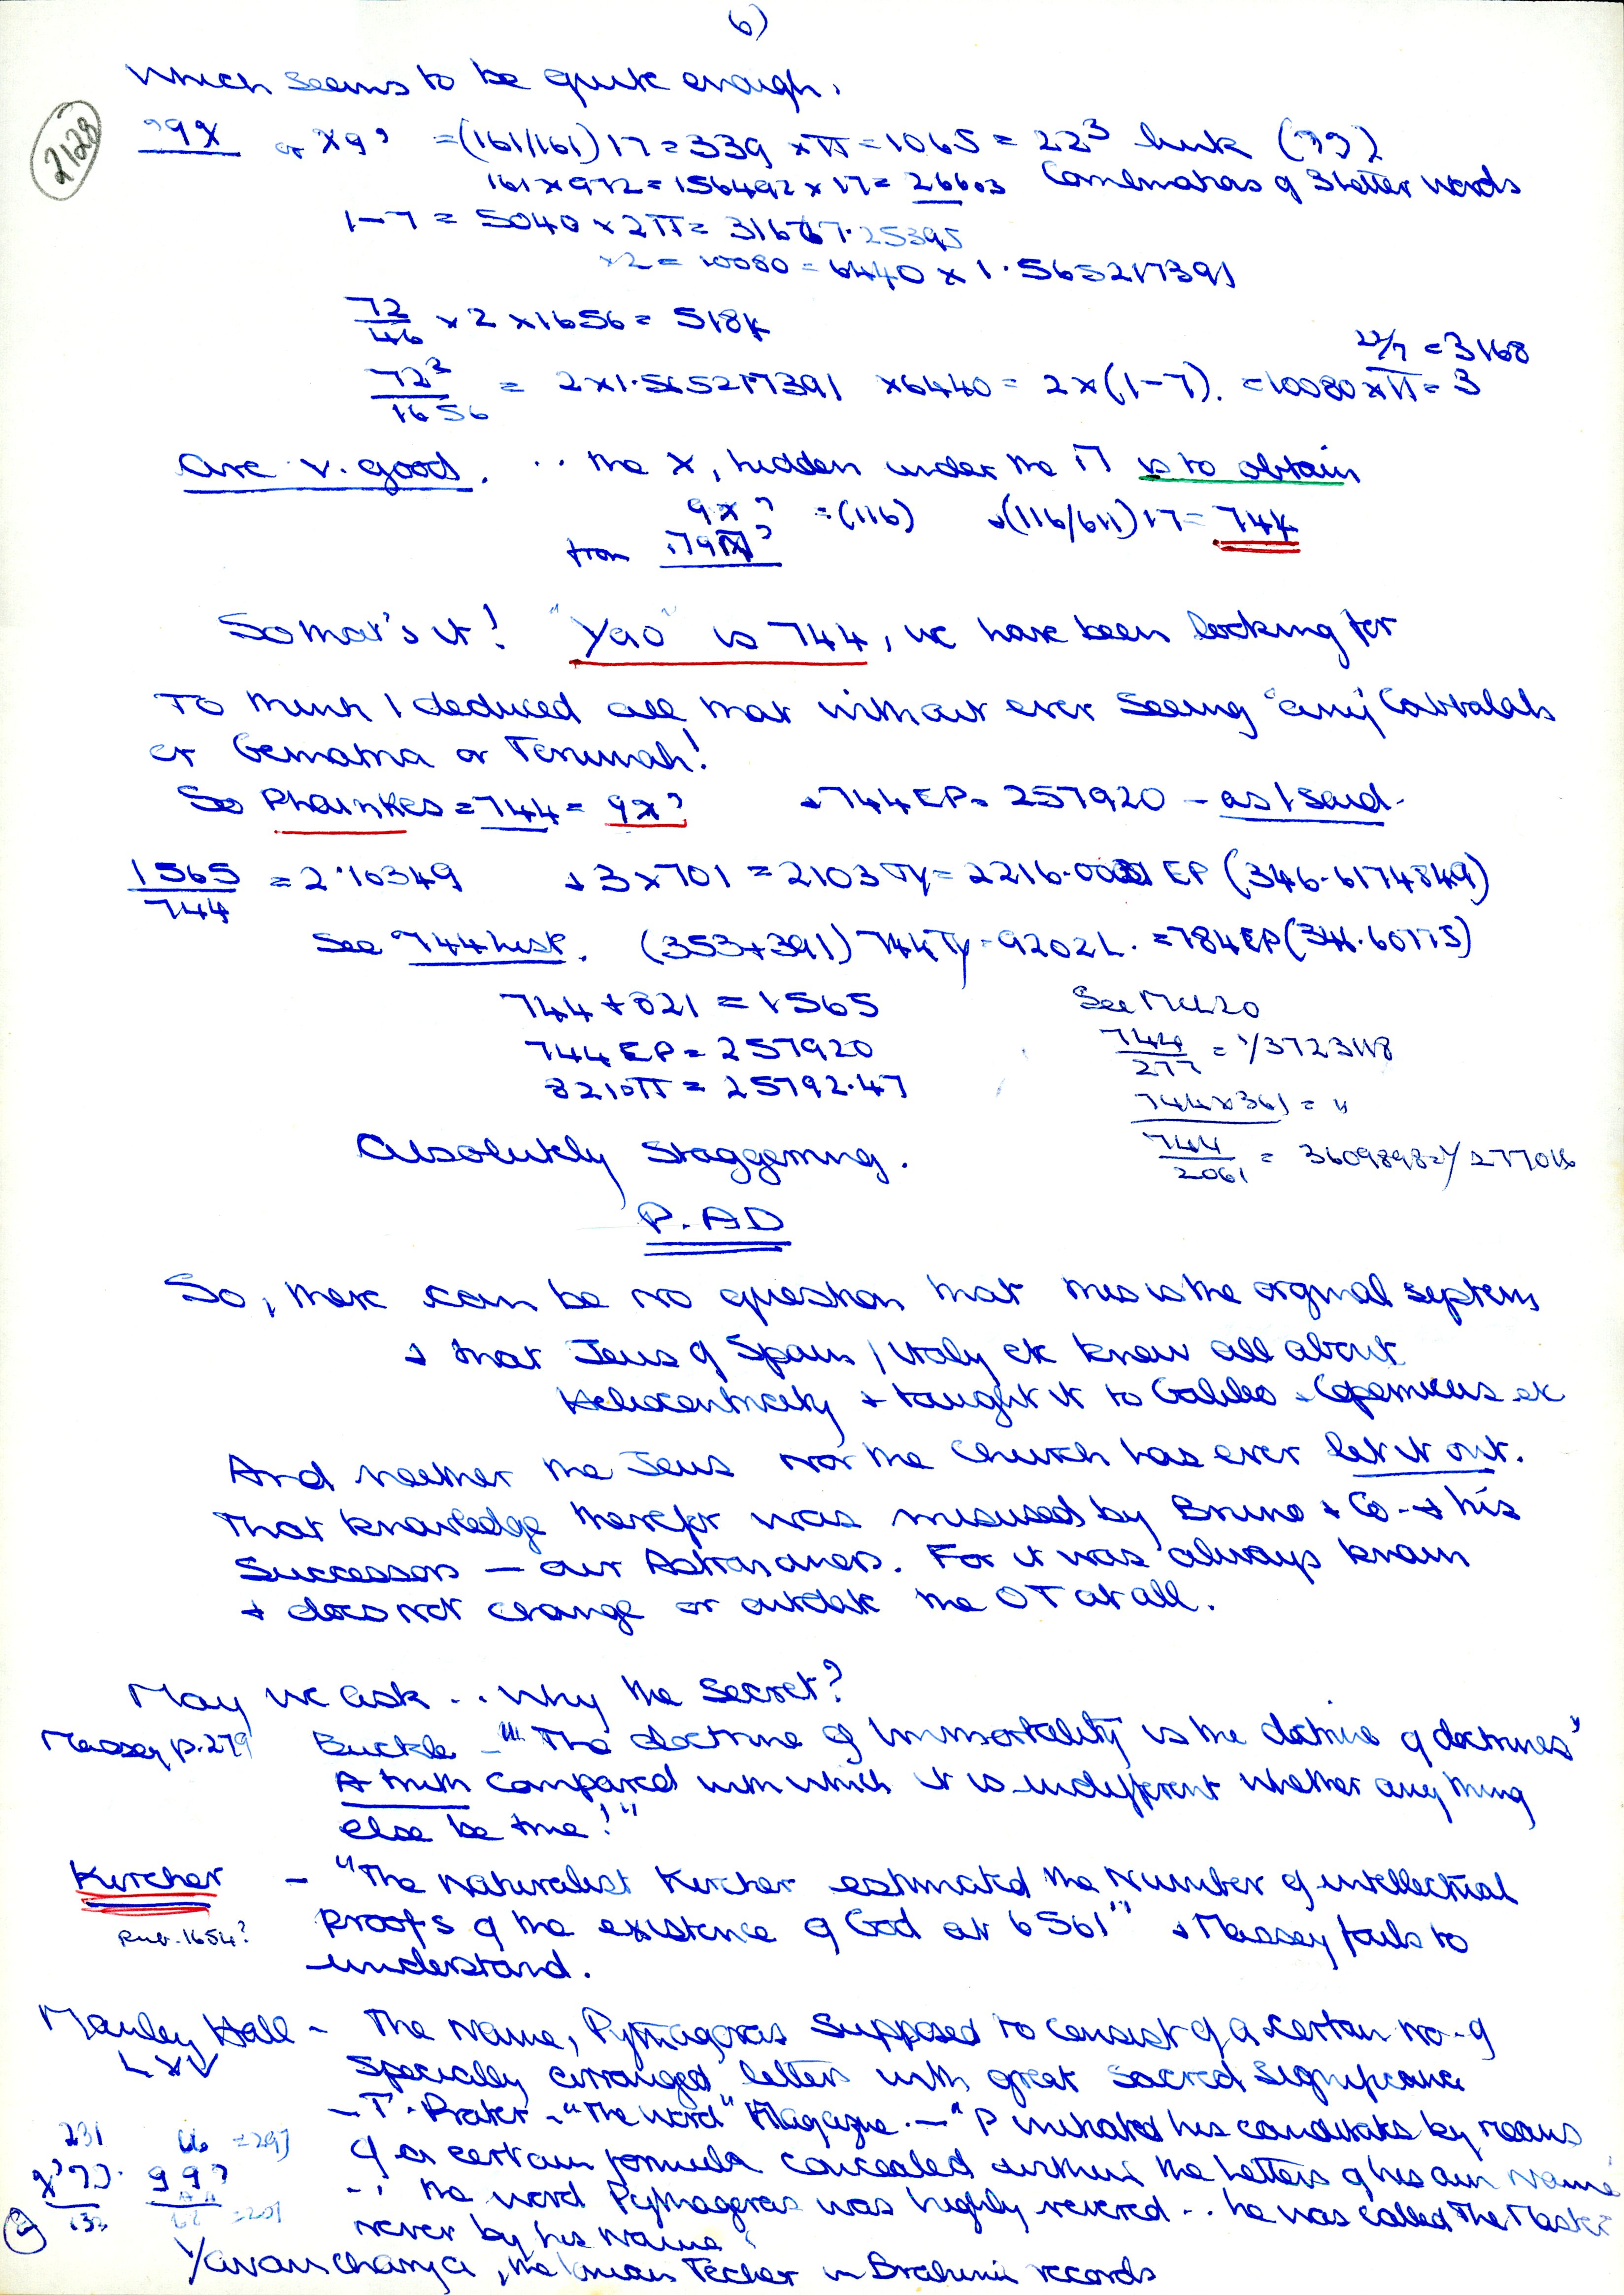 6)
Which seems to be quite enough.
2128
or = (161/161) 17 = 339 × π = 1065 = 22³ (
161 × 972 = 156492 × 17 = 26603 Combinations of 3 letter words
1-7 = 5040 × 2π = 31667.25395
×2 = 10080 = 6440 × 1.565217391
72/46 × 2 × 1656 = 5184
22/7 = 3168
72²/1656 = 2×1.565217391 ×6440 = 2×(1-7). =10080×π= 3
are v. good. .. the x, hidden under the is to obtain
= (116) + (116/611) 17 = 744
from
So that's it! "Yao" is 744, we have been looking for
To think I deduced all that without ever seeing "any" Cabbalah
or Gematria or Temurah!
So Phoinkes = 744 = + 744 EP = 257920 - as I said -
1565/744 = 2.10349 + 3×701 = 2103 Ty = 2216. EP (346.6174849)
See 744 list. (353+391) 744 Ty = 9202 L. = 784 EP (
744 + 821 = 1565
744 EP = 257920
821 π = 25792.47
See
744/277 = 1/3723118
744×361 = "
744/2061 = 3609898 = 1/277016
Absolutely Staggering.
P.AD
So, there can be no question that this is the orginal
+ that Jews of Spain / Italy etc knew all about
Heliocentricity + taught it to Galileo + Copernicus etc
And neither the Jews nor the Church has ever let it out.
That knowledge therefor was misused by Bruno + Co + his
Successors — our Astronomers. For it was always known
+ does not change or outdate the OT at all.
May we ask .. Why the secret?
Massey p.279 Buckle - "The doctrine of Immortality is the doctrine of doctrines"
A truth compared with which it is indifferent whether anything
else be true!"
Kircher - "The naturalist Kircher estimated the Number of intellectual
pub. 1654? proofs of the existence of God at 6561" + Massey fails to
understand.
Manley Hall - The Name, Pythagoras supposed to consist of a certain no. of
LXV specially arranged letters with great sacred significance
- T. Prater - "The Word" Magazine. - "P initiated his candidates by means
231 = 297 of a certain formula concealed within the letters of his own name
.. the word Pythagoras was highly revered .. he was called The Master
132 never by his Name
Yavancharya, the Ionian Teacher in Brahmin records